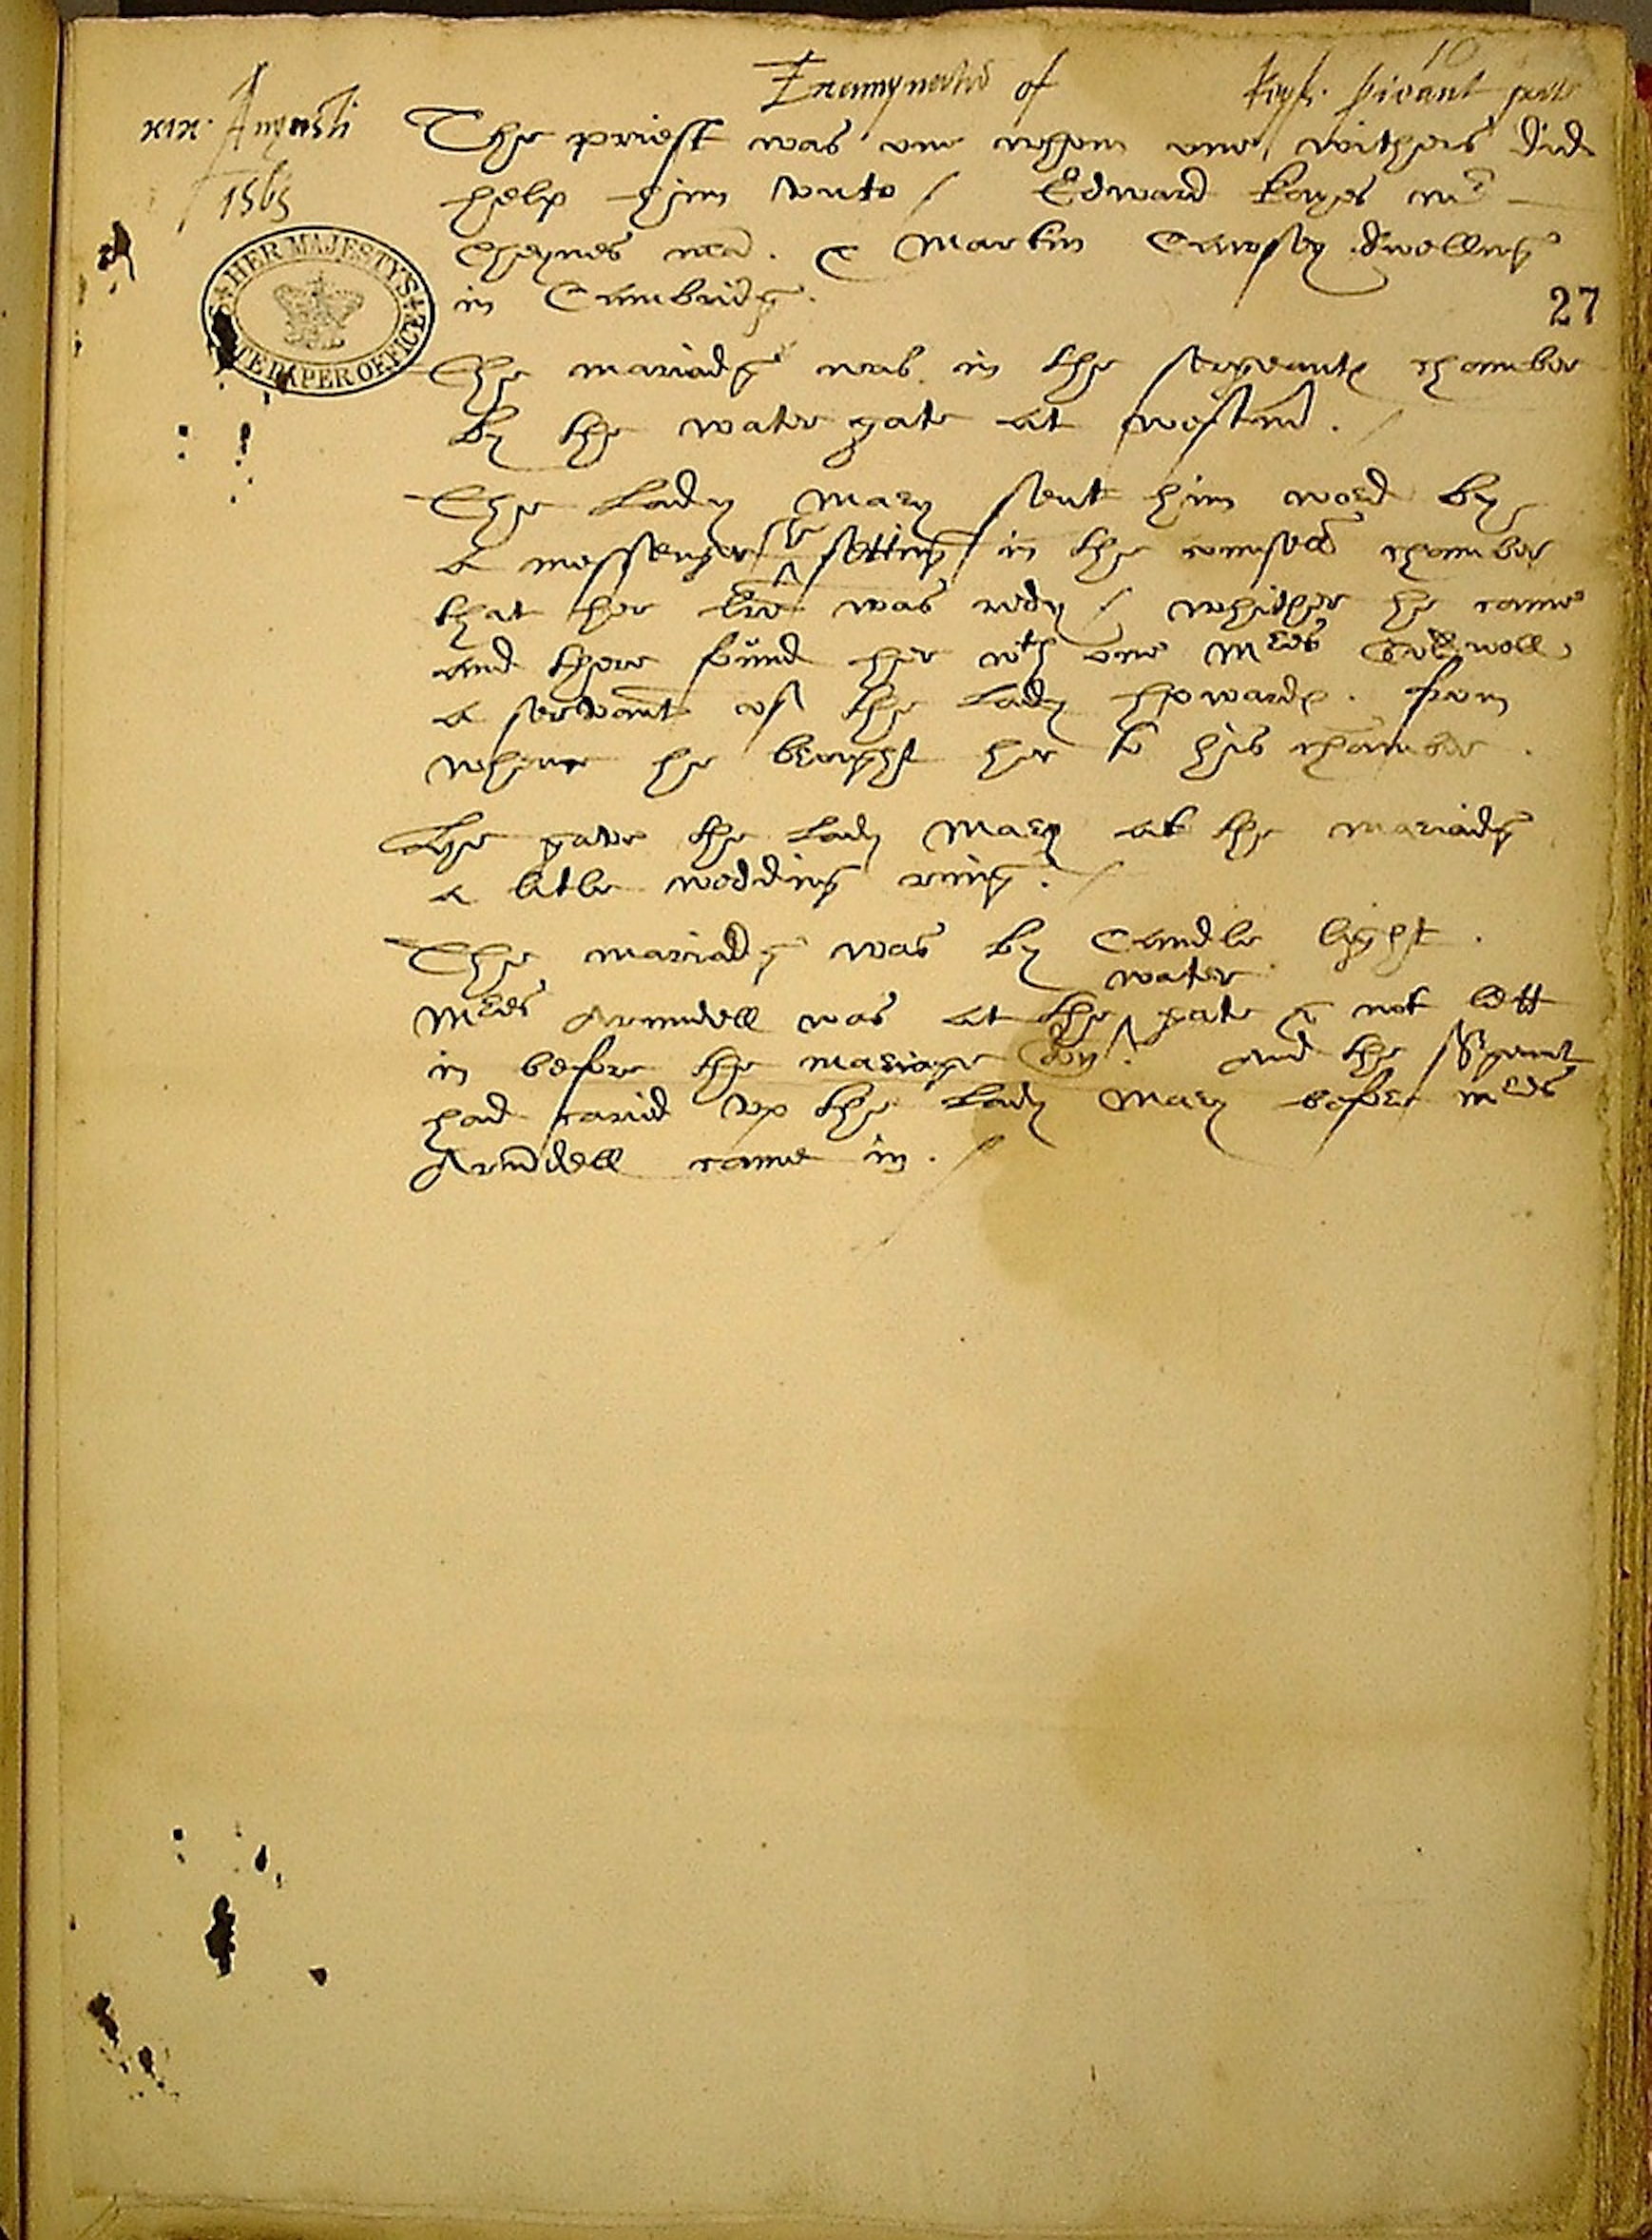 10
Examynatiō of Keys sieant porter
xix. Augusti
1565
The priest was one whom one withers did
help him vnto / Edward Keyes mr
Cheynes mā. & Martin Cawsey dwelling
in Cambridg.
27
HER MAJESTYS STATE PAPER OFFICE
The mariadg was in the sergeants chamber
by the water gate at westm̄.
The Lady Mary sent him word by
a messenger he setting in the counsell chamber
that her was redy / whither he came
and there found her wth one Mres Goldwell
a servant of the Lady Howards. from
whence he brought her to his chamber.
He gave the Lady Mary at the mariadg
a litle wedding ring. /
The mariadg was by Candle light.
water
Mres Arundell was at the gate & not lett
in before the mariage don. And the sergeant
had caried vp the Lady Mary before mres
Arundell came in. /